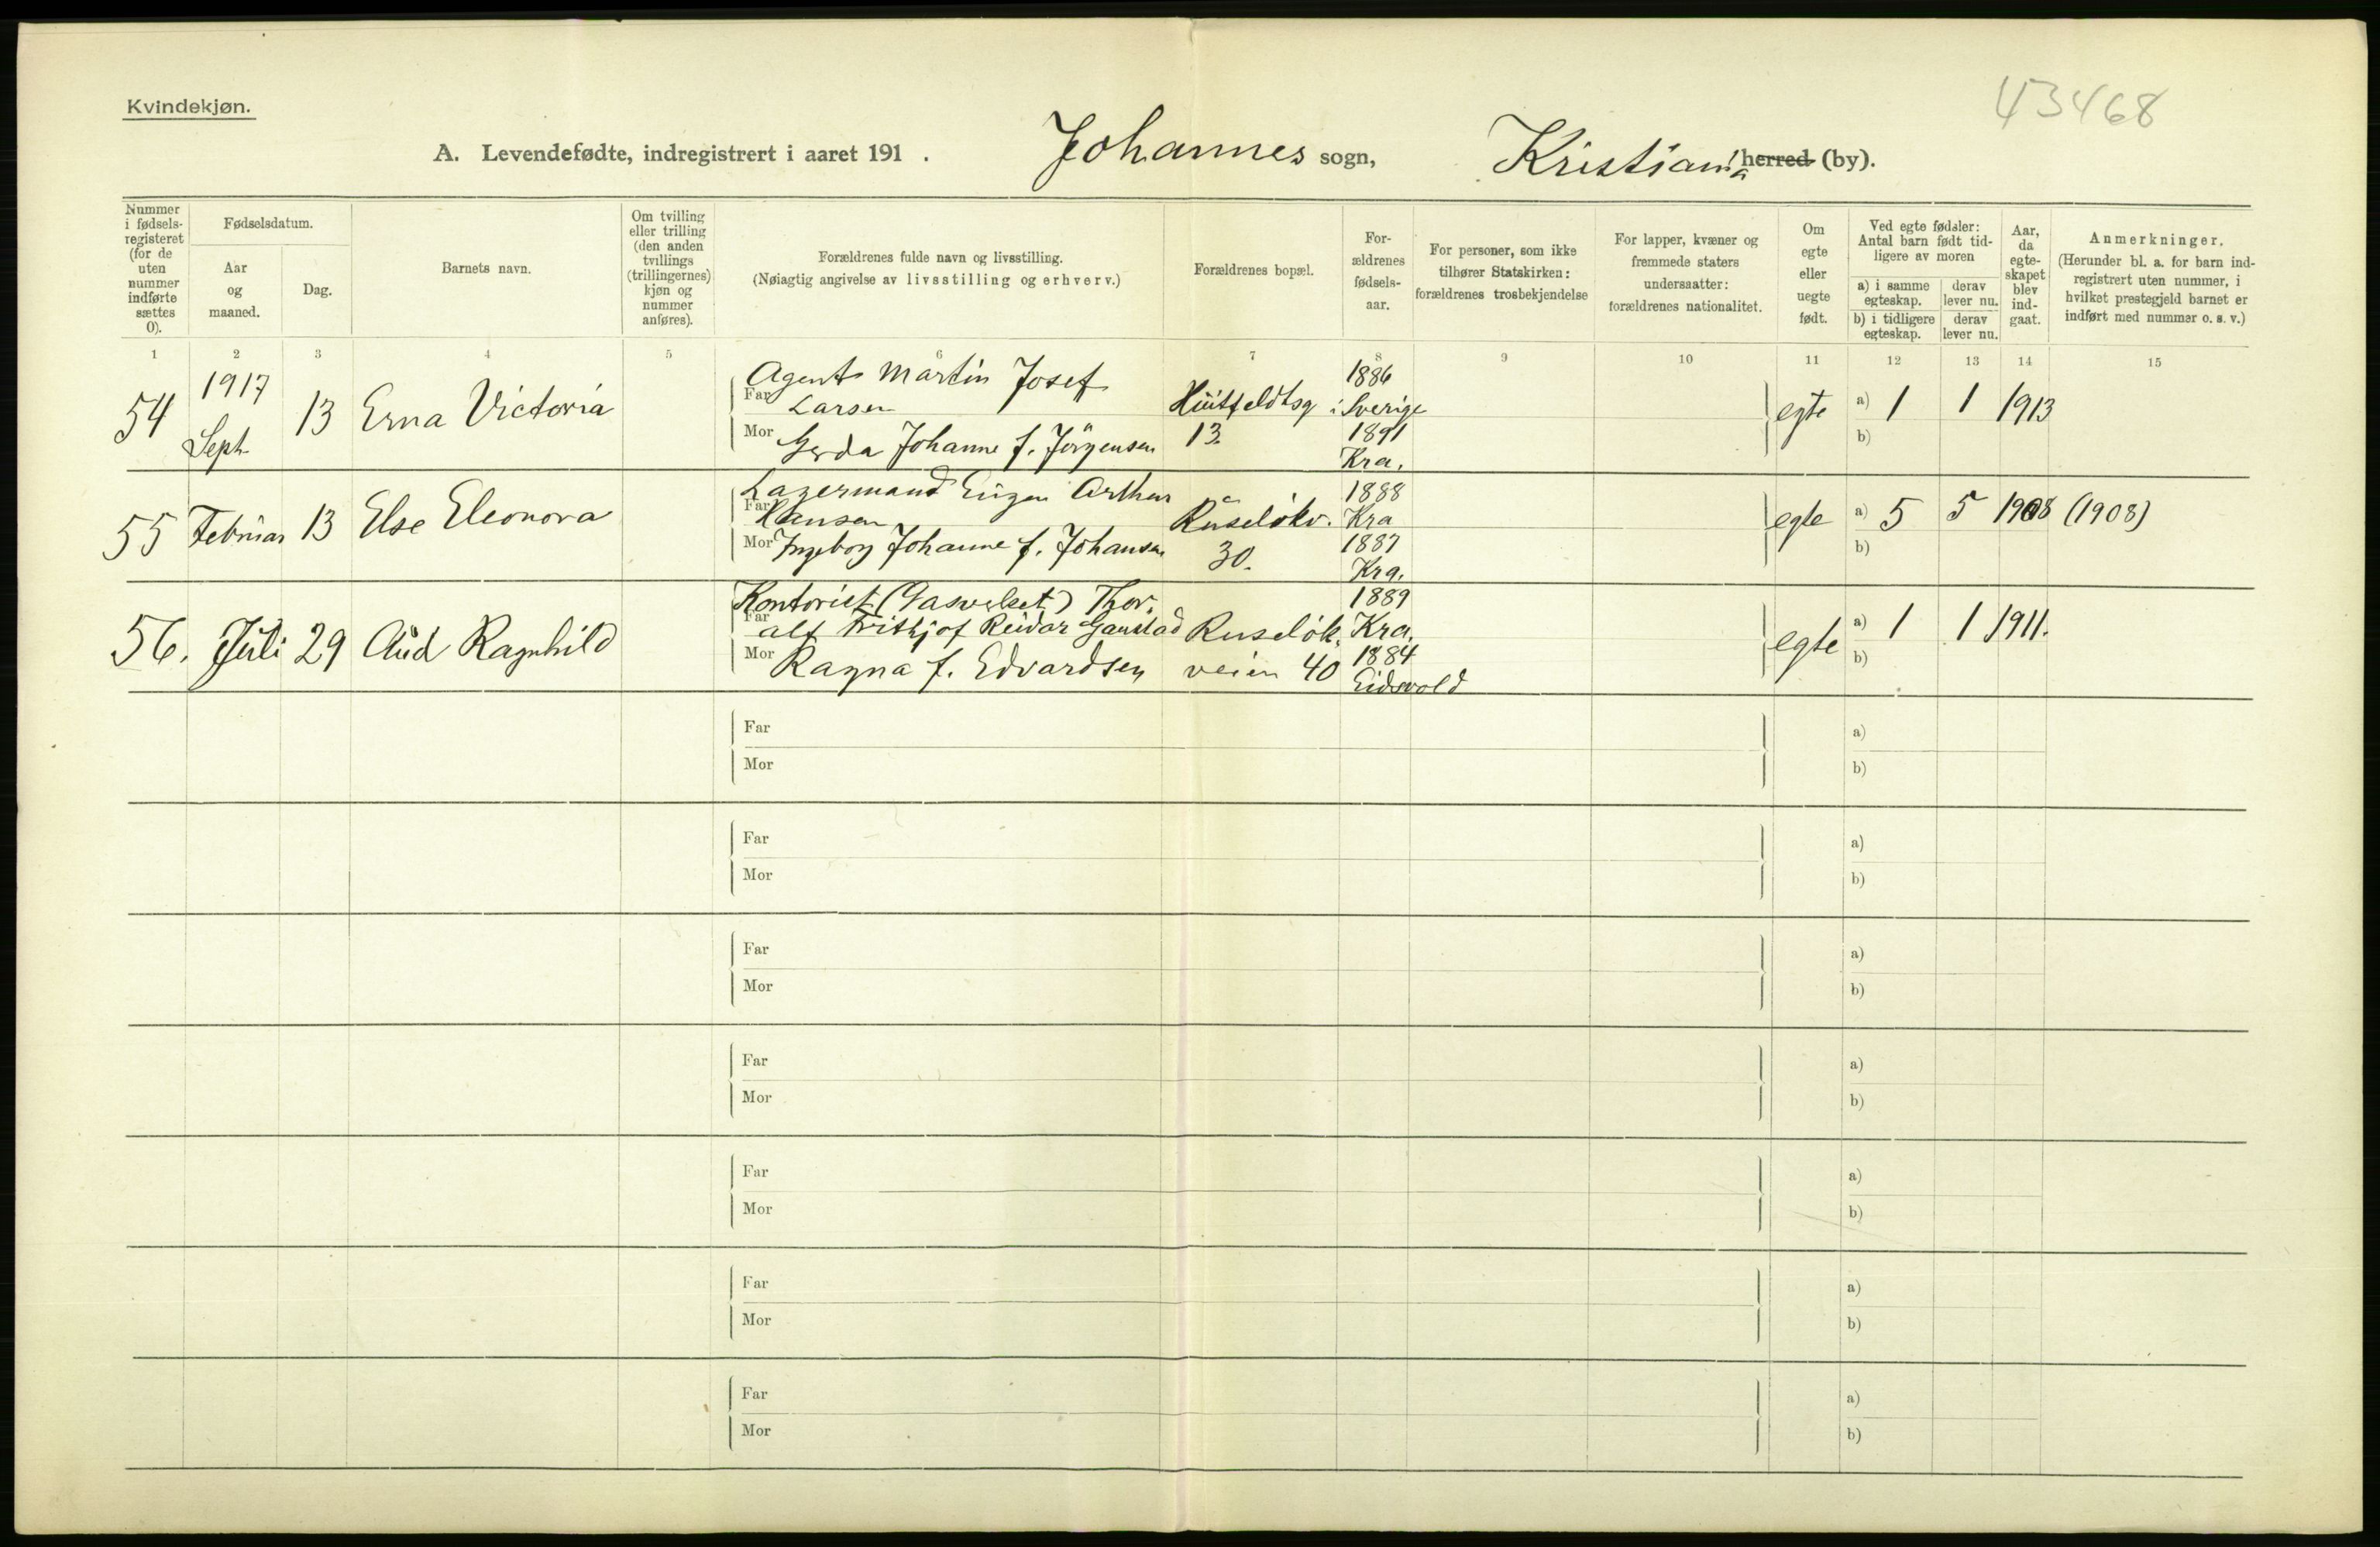 43468
Kvindekjøn.
A. Levendefødte, indregistrert i aaret 191 . Johannes sogn, Kristiania herred (by).
Nummer i fødsels-registeret (for de uten nummer indførte sættes 0).
Fødselsdatum.
Aar og maaned.
Dag.
Barnets navn.
Om tvilling eller trilling (den anden tvillings (trillingernes) kjøn og nummer anføres).
Forældrenes fulde navn og livsstilling.
(Nøiagtig angivelse av livsstilling og erhverv.)
Forældrenes bopæl.
For-ældrenes fødsels-aar.
For personer, som ikke tilhører Statskirken: forældrenes trosbekjendelse
For lapper, kvæner og fremmede staters undersaatter: forældrenes nationalitet.
Om egte eller uegte født.
Ved egte fødsler: Antal barn født tid-ligere av moren
a) i samme egteskap.
derav lever nu.
b) i tidligere egteskap.
derav lever nu.
Aar, da egte-skapet blev ind-gaat.
Anmerkninger.
(Herunder bl. a. for barn ind-registrert uten nummer, i hvilket prestegjeld barnet er indført med nummer o. s. v.)
1 2 3 4 5 6 7 8 9 10 11 12 13 14 15
54 1917 Sept. 13 Erna Victoria
Agent Martin Josef
Far Larsen
Mor Gerda Johanne f. Jörgensen
Hüitfeldtsg 13.
1886 i Sverige
1891 Kra.
egte a) 1 1 1913
b)
55 Februar 13 Else Eleonora
Lagermand Eugen Arthur
Far Hansen
Mor Ingeborg Johanne f. Johansen
Ruseløkv. 30.
1888 Kra
1887 Kra.
egte a) 5 5 1908 (1908)
b)
56. Juli 29 Aud Ragnhild
Kontorist (Gasverket) Thor.
Far Alf Frithjof Reidar Gaustad
Mor Ragna f. Edvardsen
Ruseløk. veien 40
1889 Kra.
1884 Eidsvold
egte a) 1 1 1911.
b)
Far a)
Mor b)
Far a)
Mor b)
Far a)
Mor b)
Far a)
Mor b)
Far a)
Mor b)
Far a)
Mor b)
Far a)
Mor b)